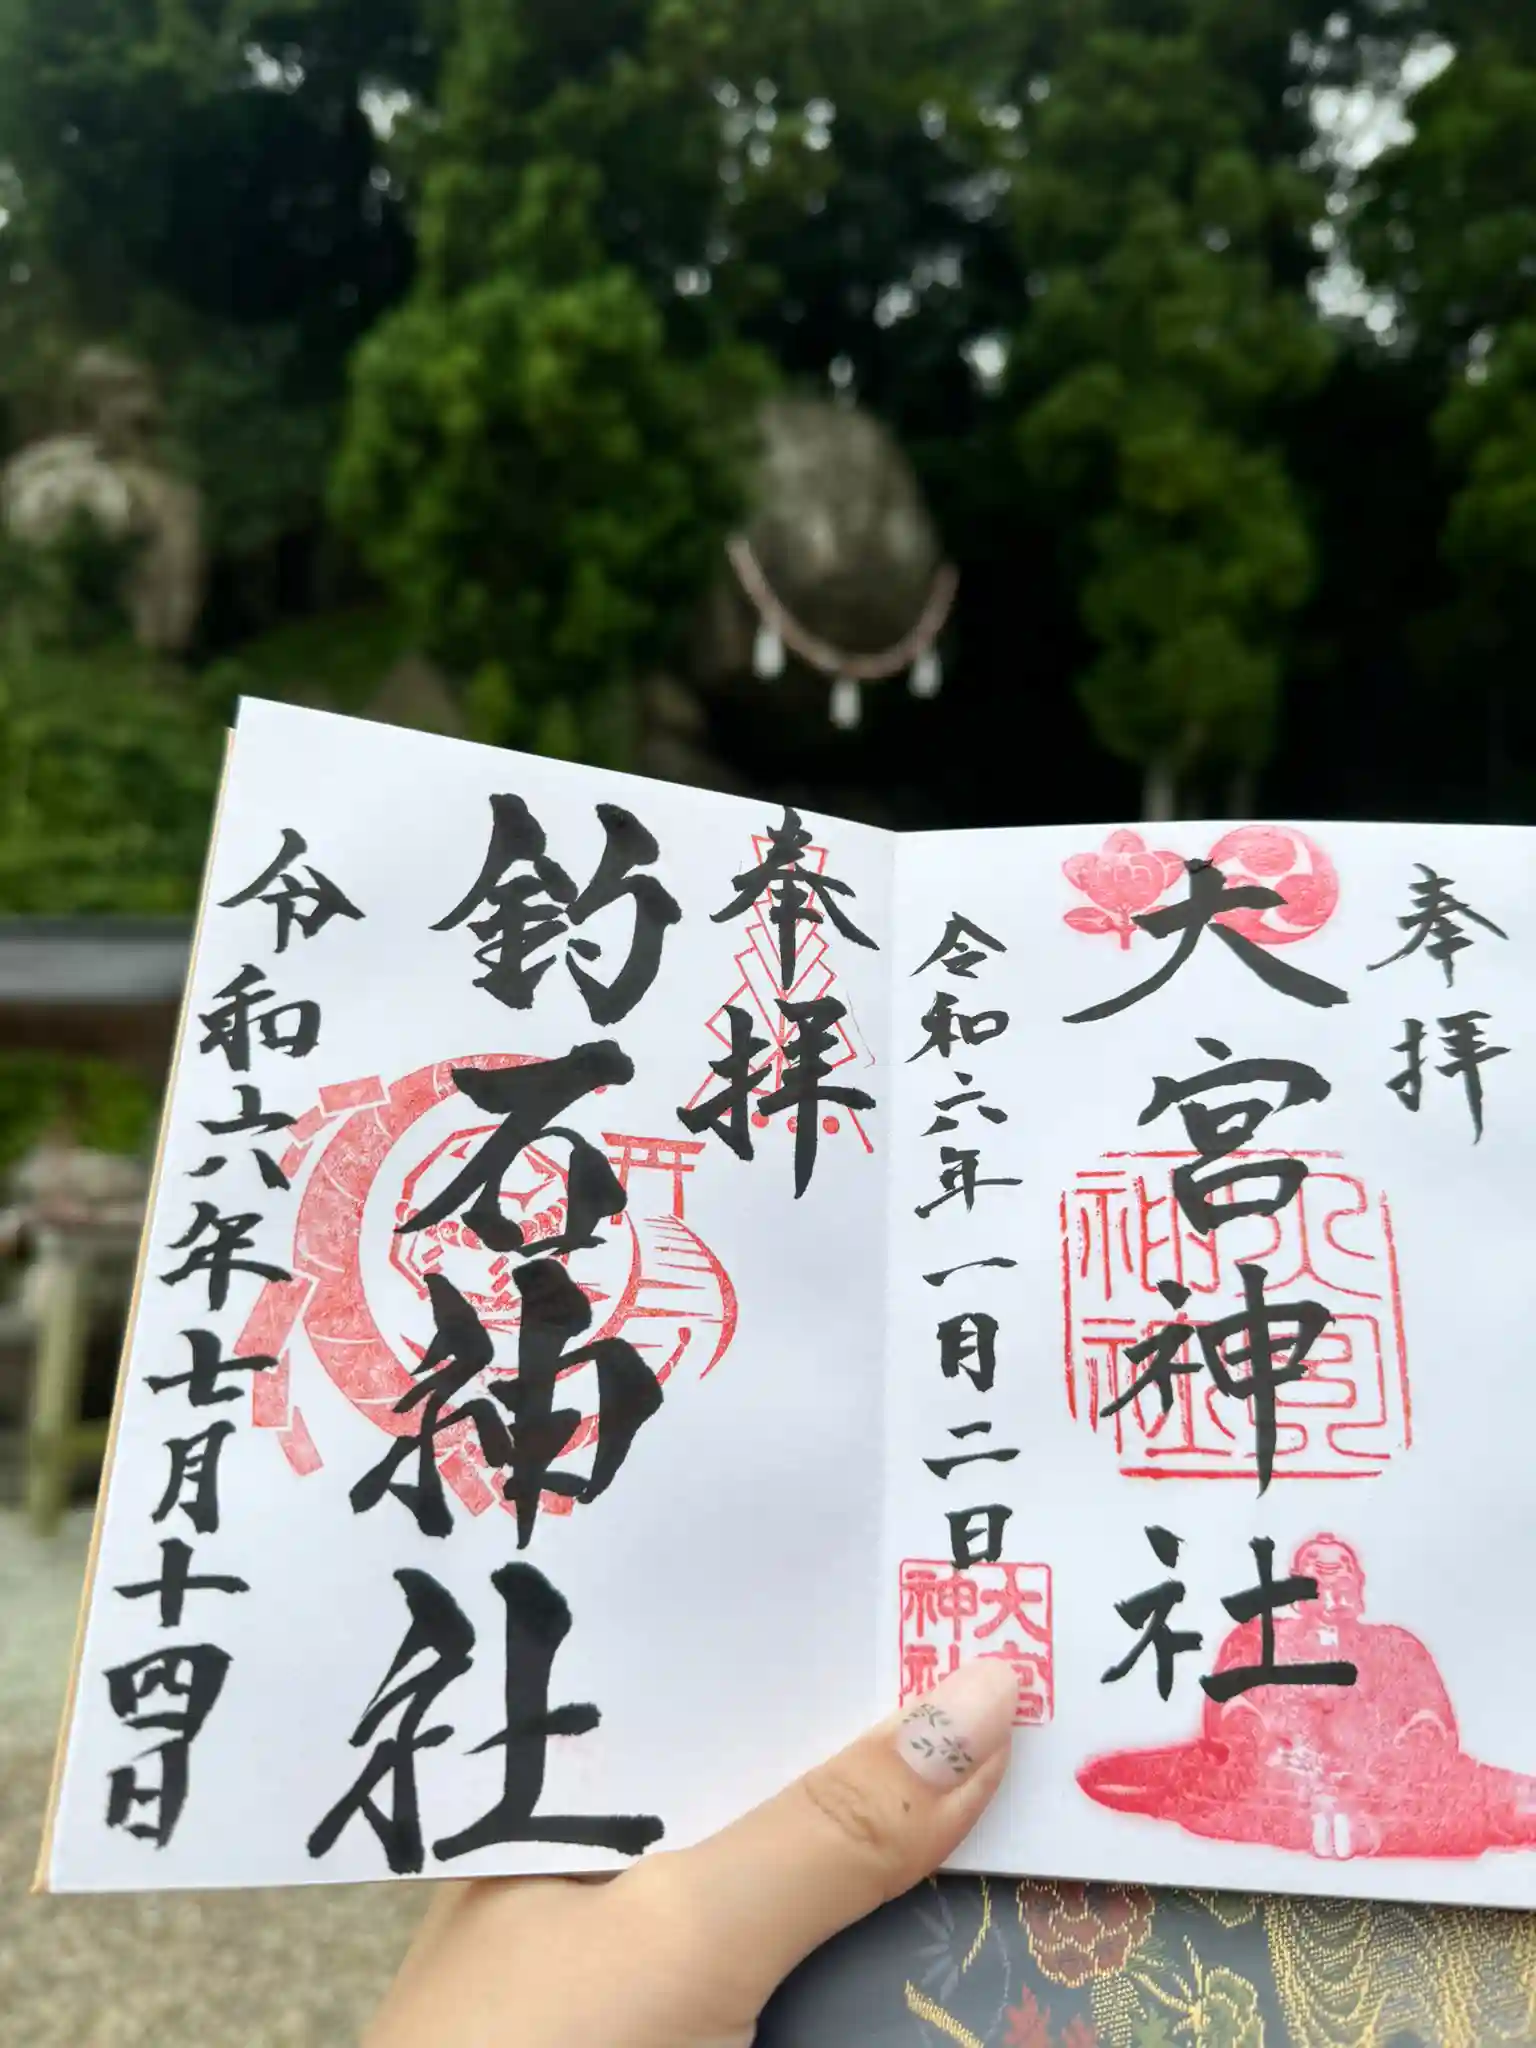 奉拝
大宮神社
令和六年一月二日
大宮神社
大宮神社
奉拝
釣石神社
令和六年七月十四日